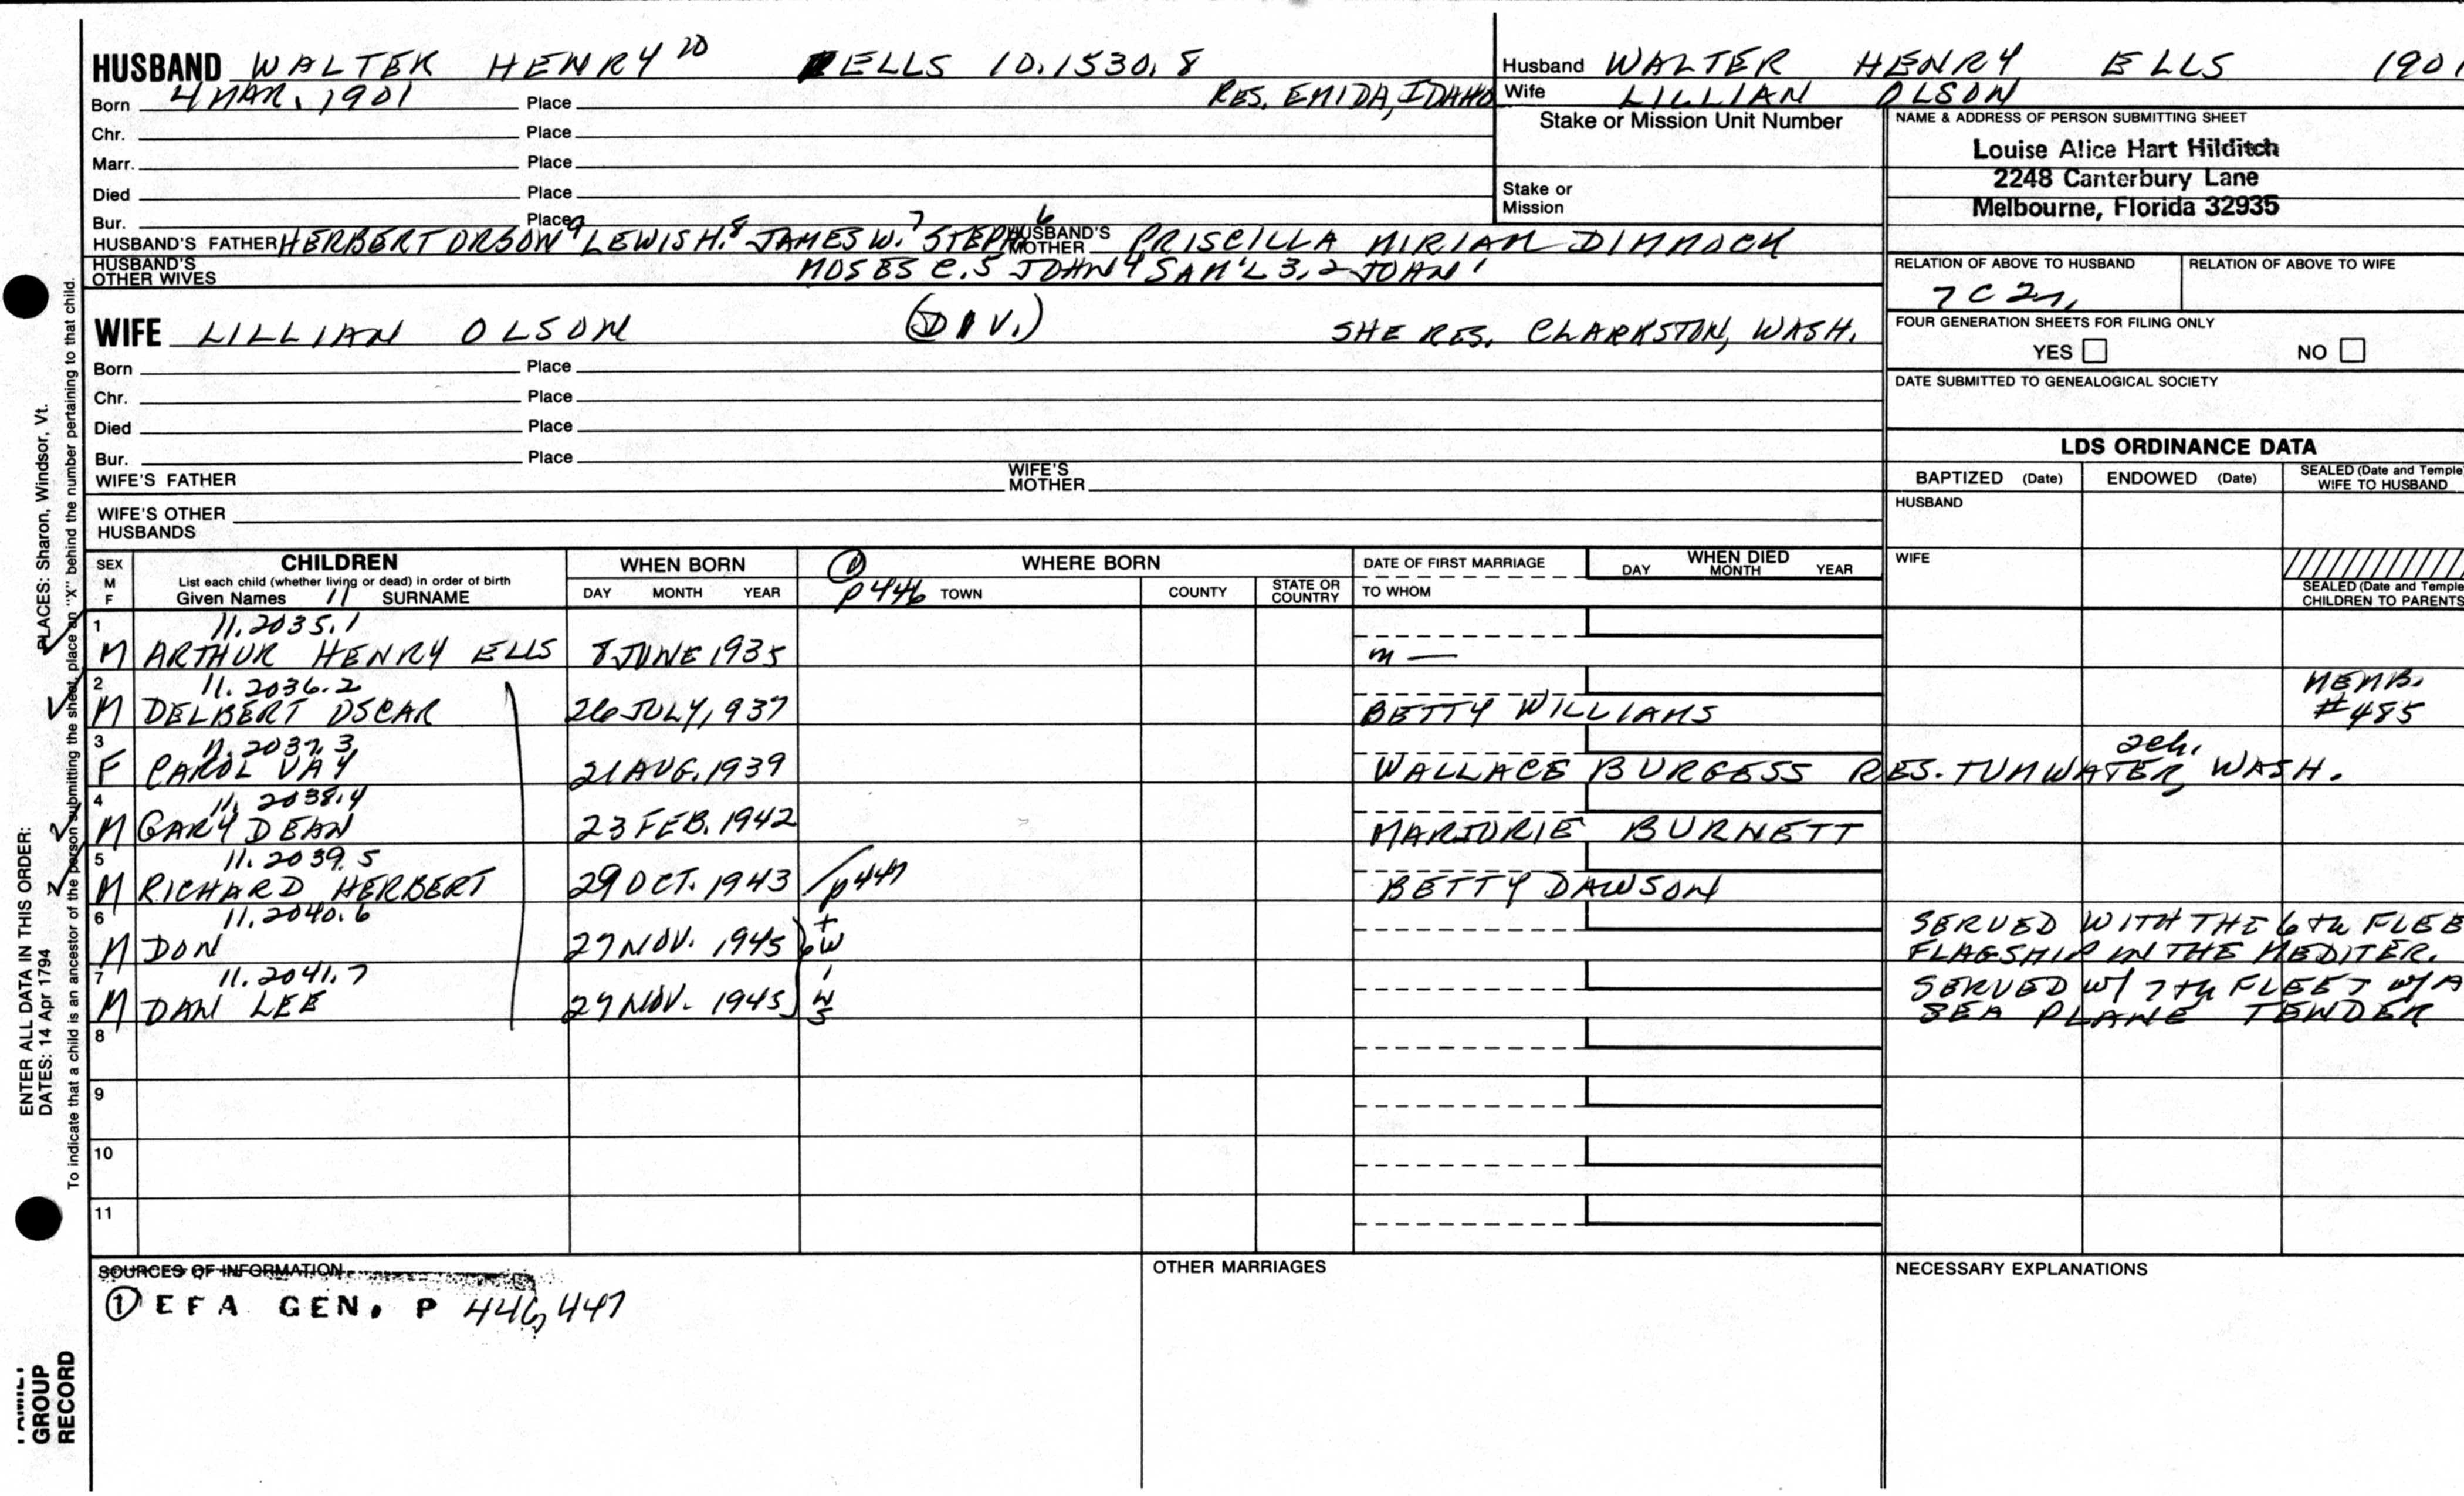 HUSBAND WALTER HENRY 10 ELLS 10.1530.8
Born 4 MAR. 1901 Place RES. EMIDA, IDAHO
Chr. Place
Marr. Place
Died Place
Bur. Place
HUSBAND'S FATHER HERBERT ORSON 9 LEWIS H. 8 JAMES W. 7 STEPH 6 HUSBAND'S MOTHER PRISCILLA MIRIAM DIMMOCK
HUSBAND'S OTHER WIVES MOSES C. 5 JOHN 4 SAM'L 3, 2 JOHN 1
WIFE LILLIAN OLSON (DIV.) SHE RES. CLARKSTON, WASH.
Born Place
Chr. Place
Died Place
Bur. Place
WIFE'S FATHER WIFE'S MOTHER
WIFE'S OTHER HUSBANDS
Husband WALTER HENRY ELLS 1901
Wife LILLIAN OLSON
Stake or Mission Unit Number
Stake or Mission
NAME & ADDRESS OF PERSON SUBMITTING SHEET
Louise Alice Hart Hilditch
2248 Canterbury Lane
Melbourne, Florida 32935
RELATION OF ABOVE TO HUSBAND RELATION OF ABOVE TO WIFE
7 C 2r.
FOUR GENERATION SHEETS FOR FILING ONLY
YES NO
DATE SUBMITTED TO GENEALOGICAL SOCIETY
LDS ORDINANCE DATA
BAPTIZED (Date) ENDOWED (Date) SEALED (Date and Temple) WIFE TO HUSBAND
HUSBAND
WIFE
SEALED (Date and Temple) CHILDREN TO PARENTS
SEX M F
CHILDREN
List each child (whether living or dead) in order of birth
Given Names 11 SURNAME
WHEN BORN
DAY MONTH YEAR
① WHERE BORN
p446 TOWN COUNTY STATE OR COUNTRY
DATE OF FIRST MARRIAGE
TO WHOM
WHEN DIED
DAY MONTH YEAR
1 11.2035.1
M ARTHUR HENRY ELLS 8 JUNE 1935 m —
2 11.2036.2 MEMB.
M DELBERT OSCAR 26 JULY, 937 BETTY WILLIAMS #485
3 11.2037.3 2ch.
F CAROL VAY 21 AUG. 1939 WALLACE BURGESS RES. TUMWATER, WASH.
4 11.2038.4
M GARY DEAN 23 FEB. 1942 MARJORIE BURNETT
5 11.2039.5
M RICHARD HERBERT 29 OCT. 1943 p447 BETTY DAWSON
6 11.2040.6 SERVED WITH THE 6th FLEE
M DON 27 NOV. 1945 FLAGSHIP IN THE MEDITER.
7 11.2041.7 SERVED W/ 7th FLEET W/A
M DAN LEE 27 NOV. 1945 SEA PLANE TENDER
twins
8
9
10
11
SOURCES OF INFORMATION
① EFA GEN. P 446, 447
OTHER MARRIAGES
NECESSARY EXPLANATIONS
ENTER ALL DATA IN THIS ORDER:
DATES: 14 Apr 1794 PLACES: Sharon, Windsor, Vt.
To indicate that a child is an ancestor of the person submitting the sheet, place an "X" behind the number pertaining to that child.
FAMILY GROUP RECORD